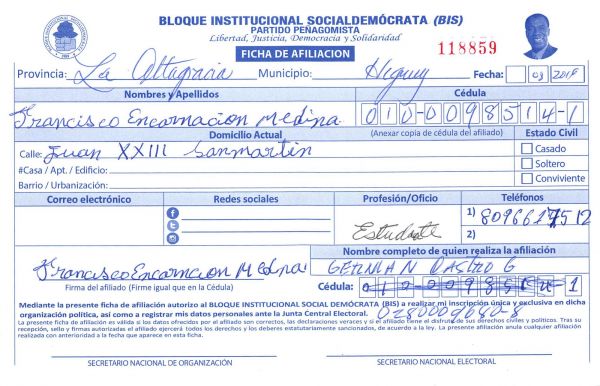 BLOQUE INSTITUCIONAL SOCIALDEMÓCRATA (BIS)
PARTIDO PEÑAGOMISTA
Libertad, Justicia, Democracia y Solidaridad
FICHA DE AFILIACION
118859
Provincia: La Altagracia Municipio: Higuey Fecha: 03 2018
Nombres y Apellidos Cédula
Francisco Encarnacion Medina 010-0098514-1
Domicilio Actual (Anexar copia de cédula del afiliado) Estado Civil
Calle: Juan XXIII Sanmartin Casado
#Casa / Apt. / Edificio: Soltero
Barrio / Urbanización: Conviviente
Correo electrónico Redes sociales Profesión/Oficio Teléfonos
Estudiante 1) 8096617512
2)
Nombre completo de quien realiza la afiliación
Francisco Encarncion Medina GERMAN CASTRO G
Firma del afiliado (Firme igual que en la Cédula) Cédula: 010-0098514-1
Mediante la presente ficha de afiliación autorizo al BLOQUE INSTITUCIONAL SOCIAL DEMÓCRATA (BIS) a realizar mi inscripción única y exclusiva en dicha
organización política, así como a registrar mis datos personales ante la Junta Central Electoral. 0280009680-8
La presente ficha de afiliación es válida si los datos ofrecidos por el afiliado son correctos, las declaraciones veraces y si el afiliado tiene el disfrute de sus derechos civiles y políticos. Tras su
recepción, sello y firmas autorizadas el afiliado ejercerá todos los derechos y los deberes estatutariamente sancionados, de acuerdo a la ley. La presente afiliación anula cualquier afiliación
realizada con anterioridad a la fecha que aparece en esta ficha.
SECRETARIO NACIONAL DE ORGANIZACIÓN SECRETARIO NACIONAL ELECTORAL